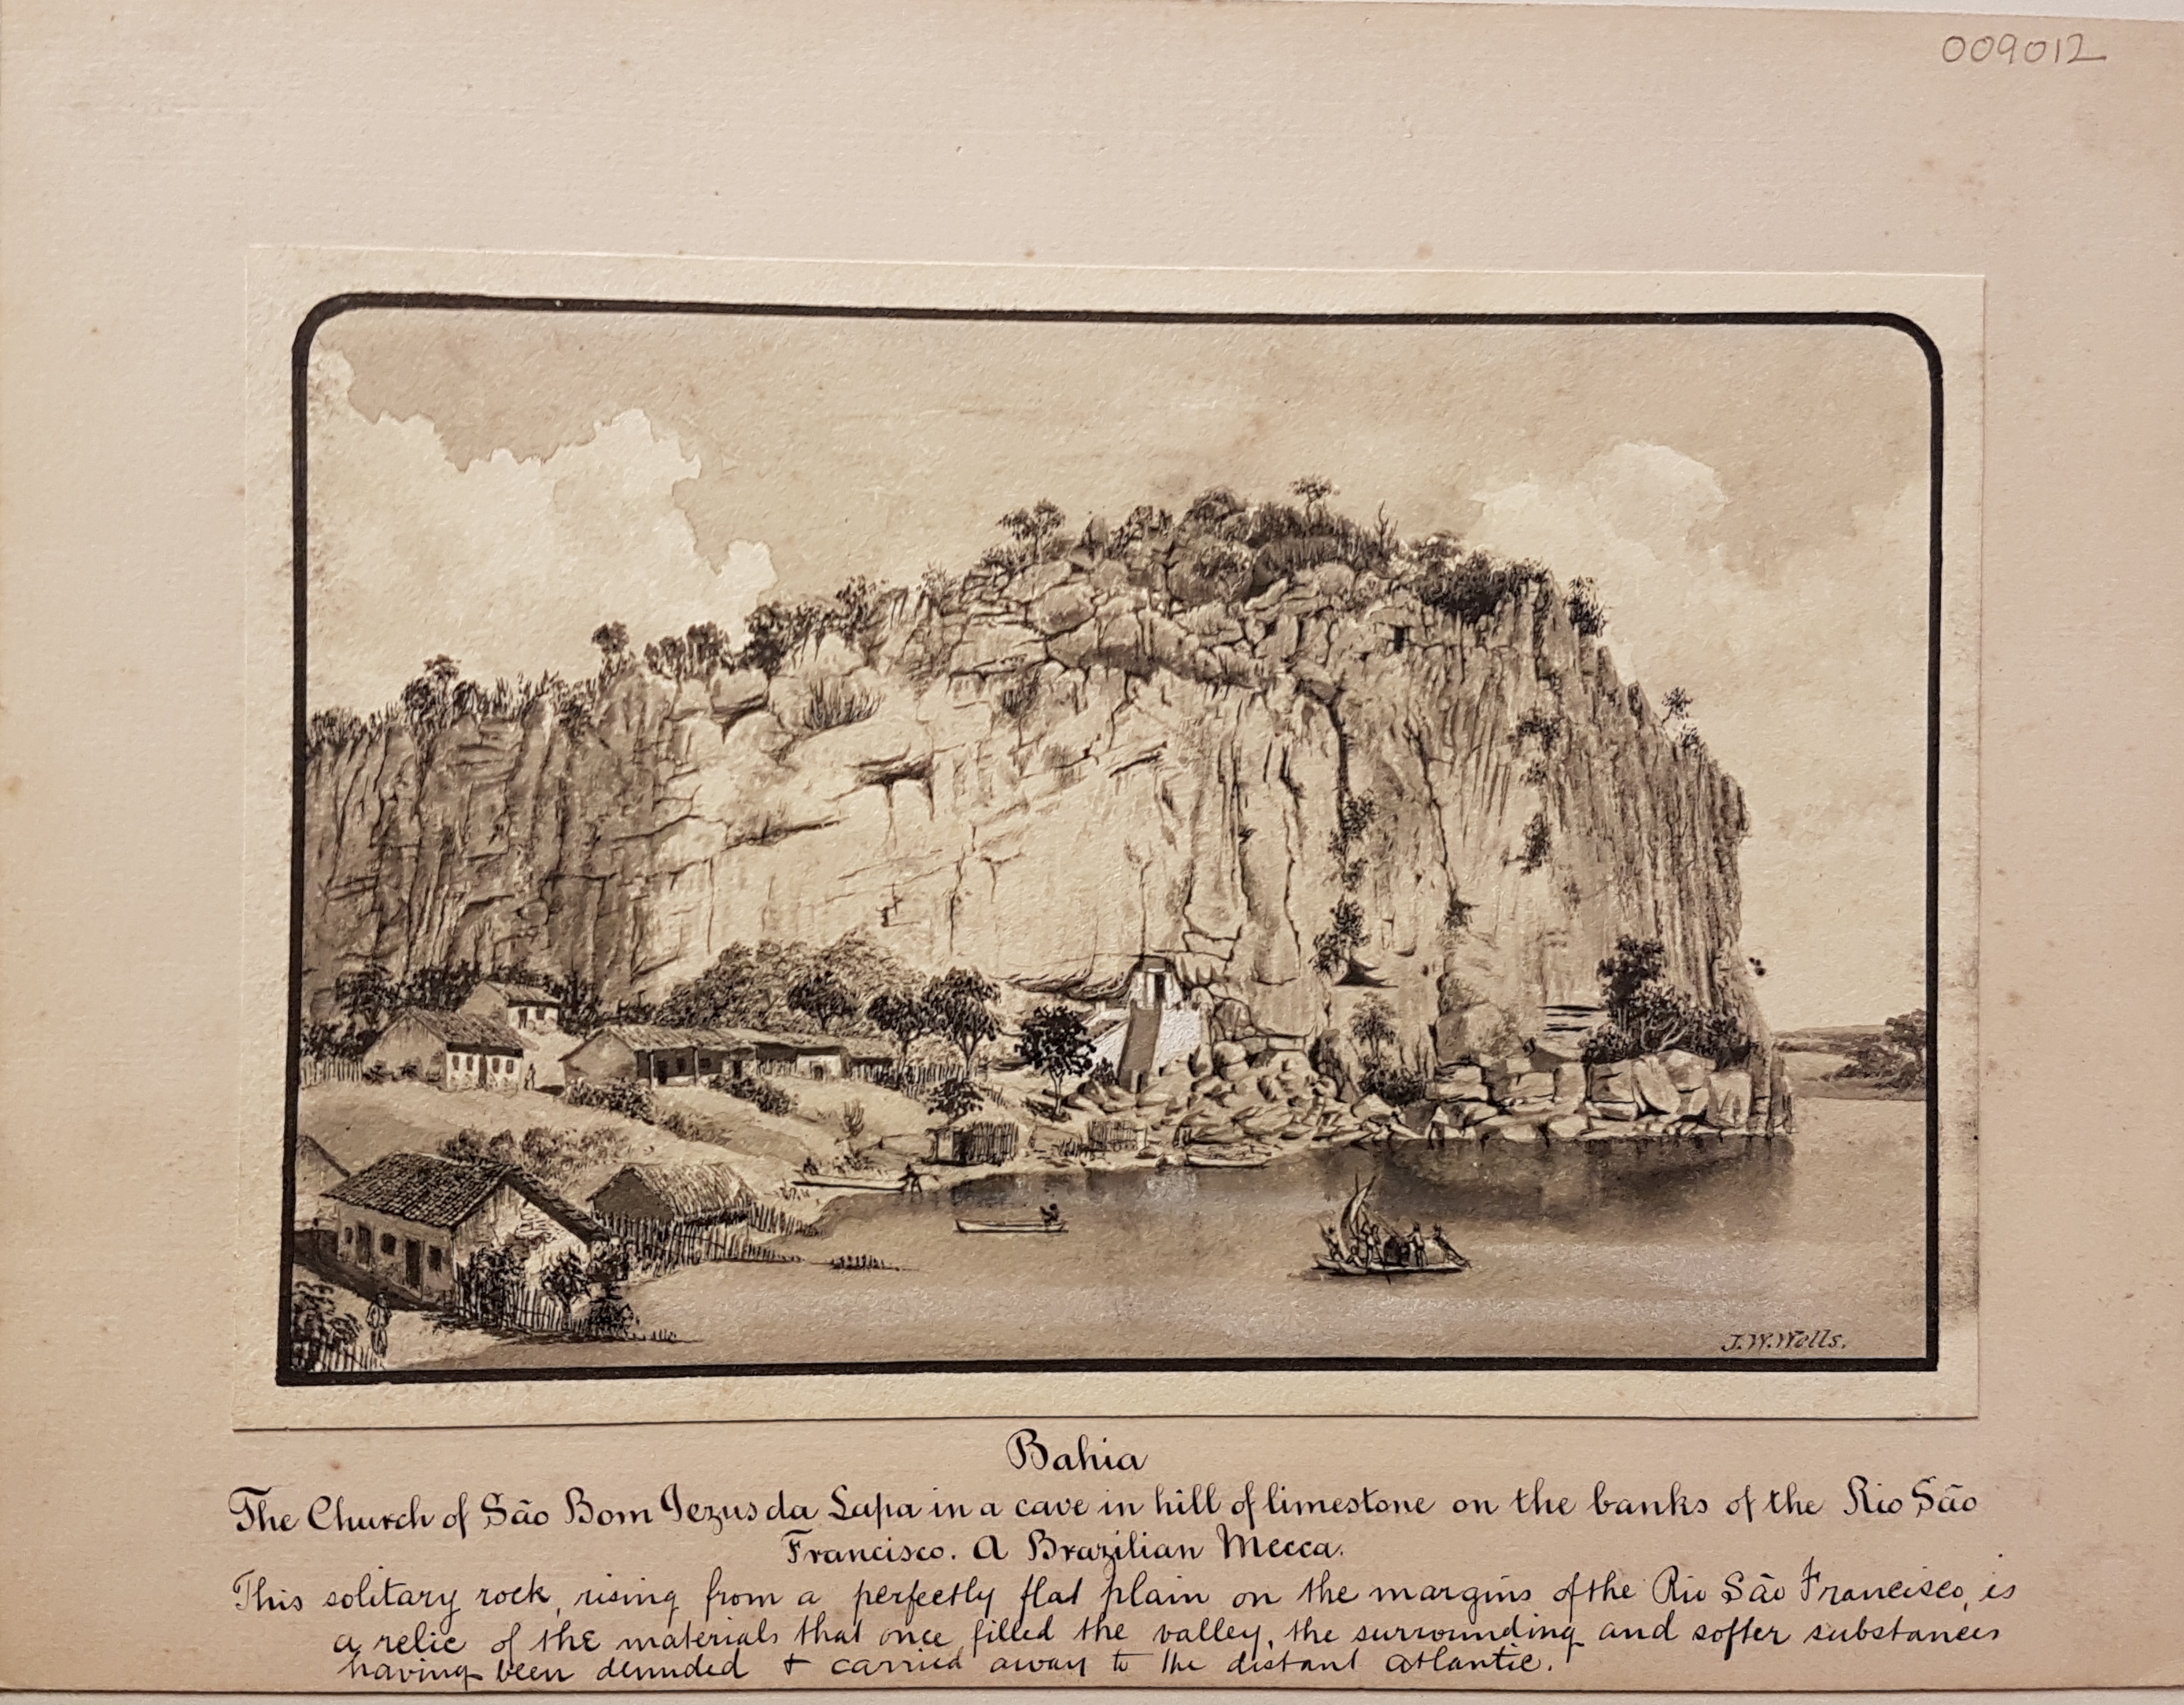 009012
J.W.Wells.
Bahia
The Church of São Bom Jezus da Lapa in a cave in hill of limestone on the banks of the Rio São
Francisco. A Brazilian Mecca.
This solitary rock, rising from a perfectly flat plain on the margins of the Rio São Francisco, is
a relic of the materials that once filled the valley, the surrounding and softer substances
having been denuded & carried away to the distant atlantic.